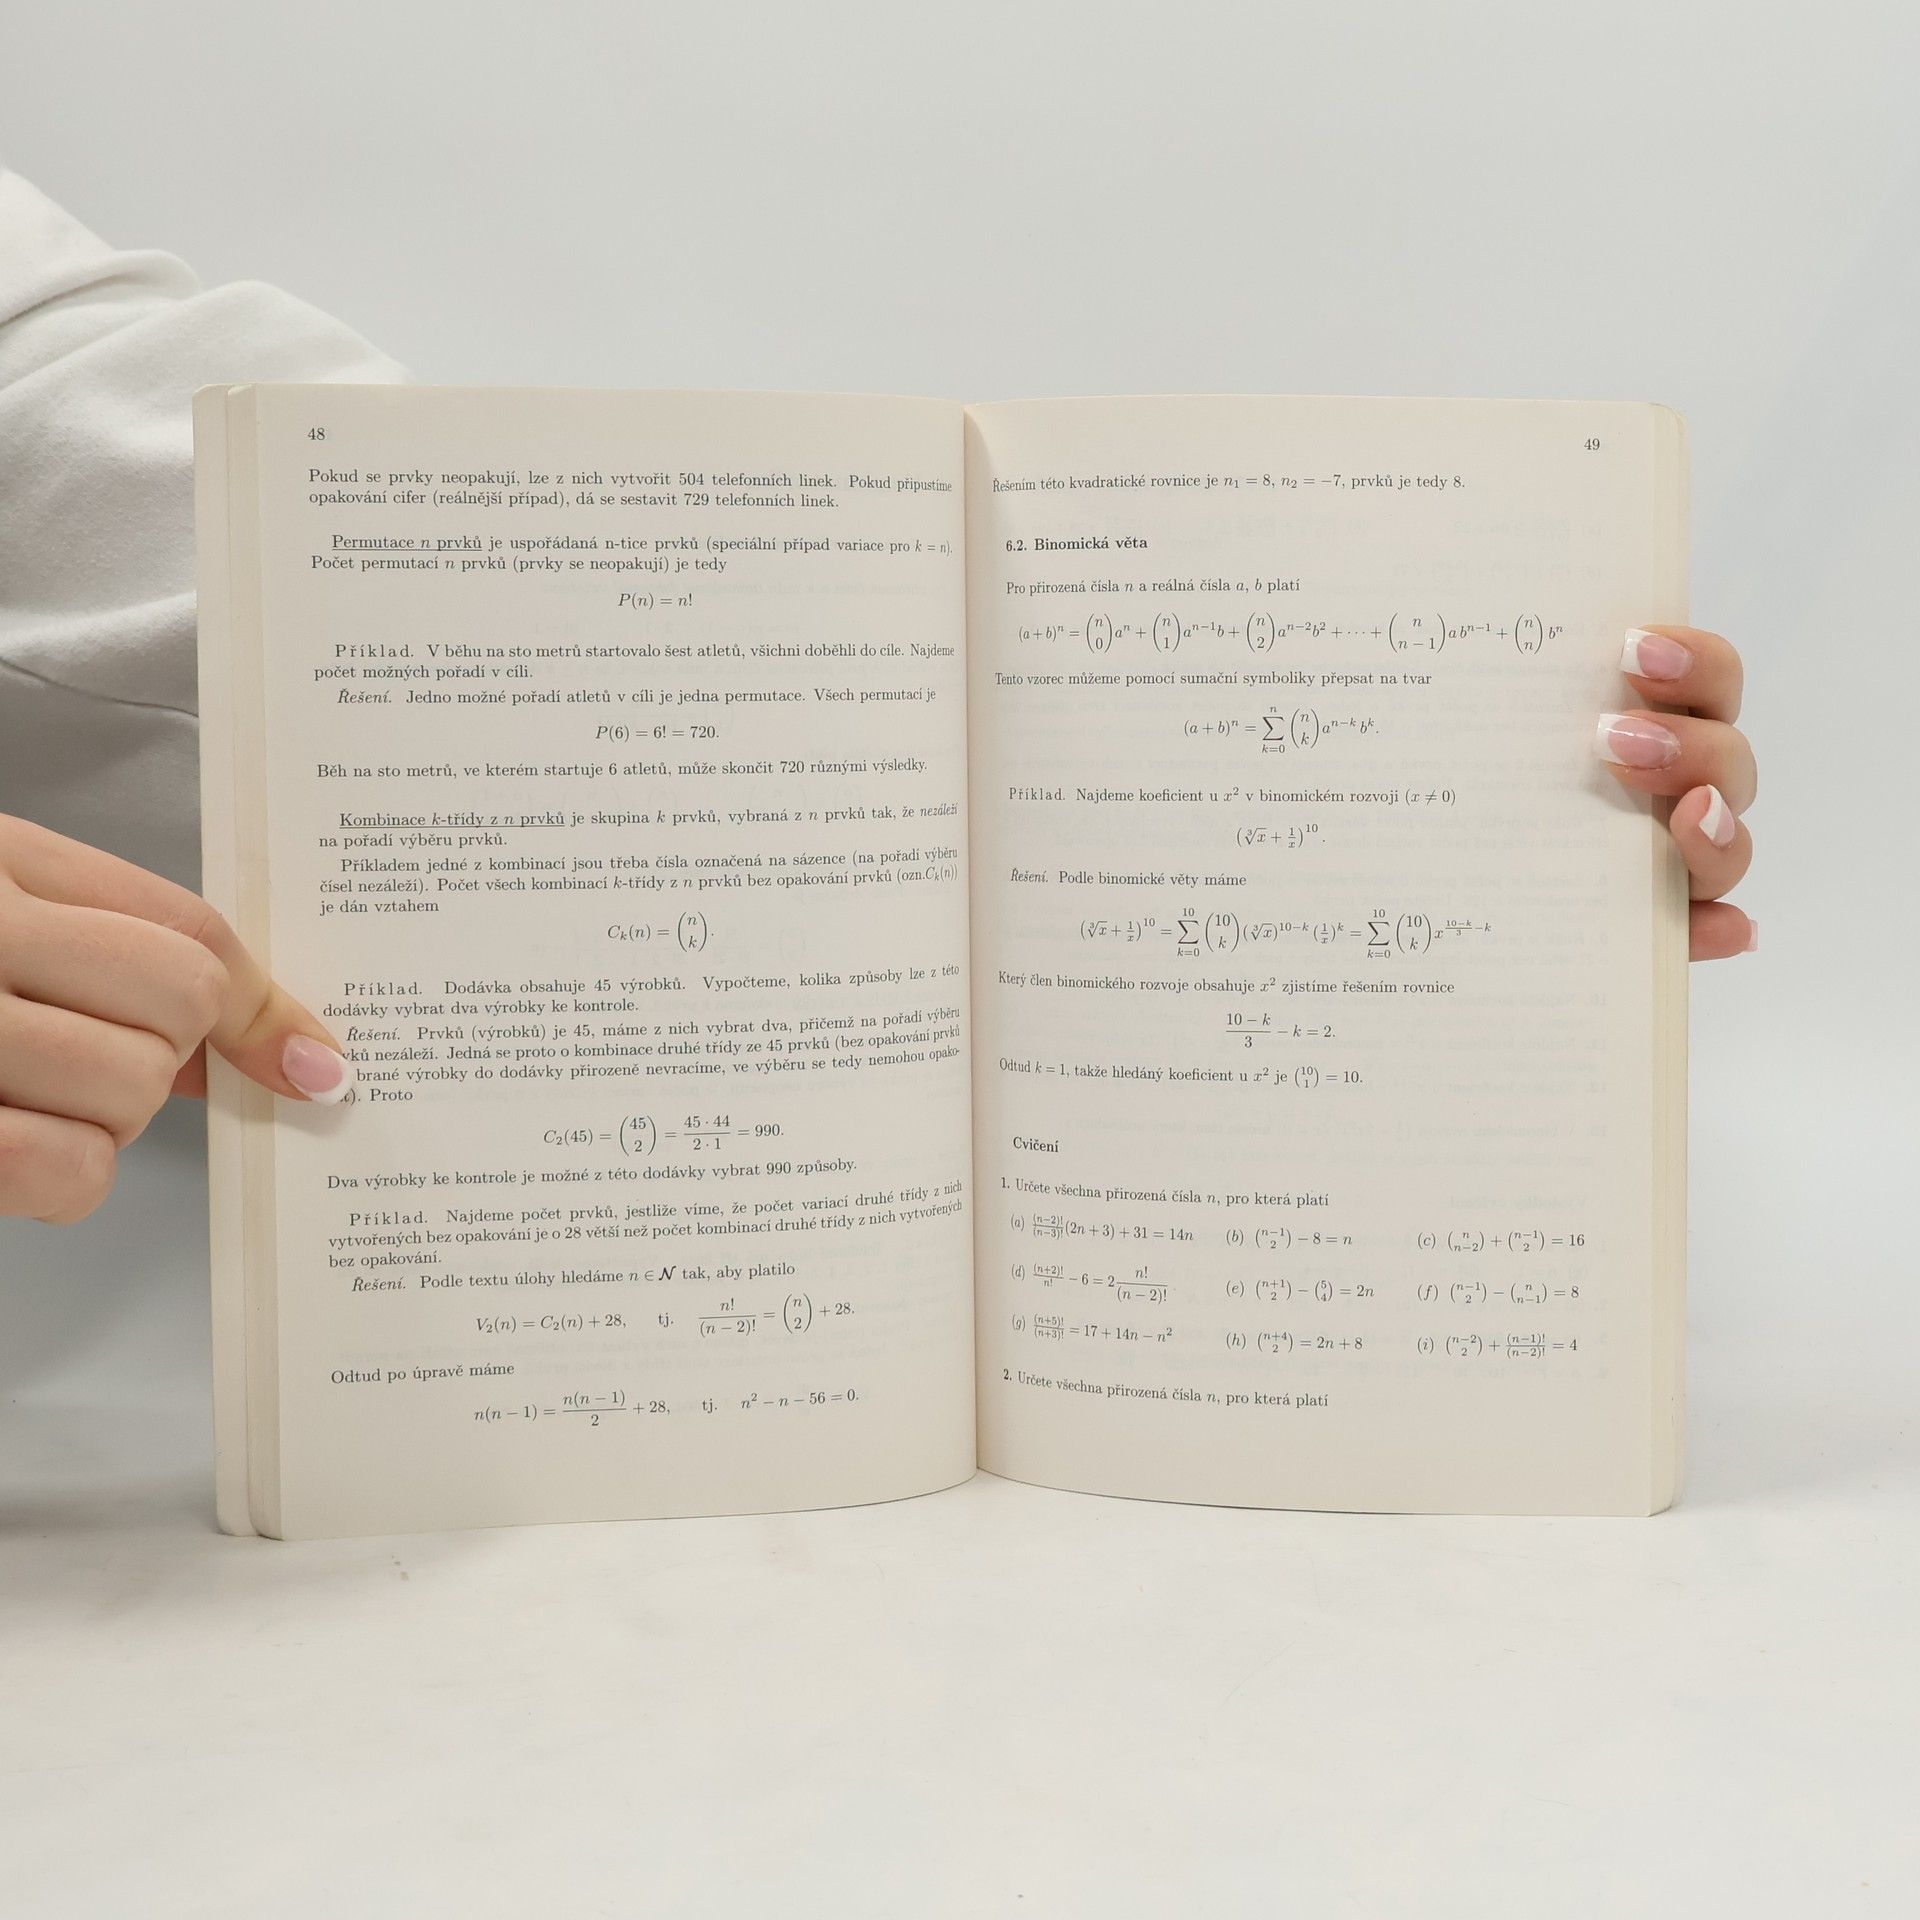 48
Pokud se prvky neopakují, lze z nich vytvořit 504 telefonních linek. Pokud připustíme
opakování cifer (reálnější případ), dá se sestavit 729 telefonních linek.
Permutace n prvků je uspořádaná n-tice prvků (speciální případ variace pro k = n).
Počet permutací n prvků (prvky se neopakují) je tedy
P(n) = n!
Příklad. V běhu na sto metrů startovalo šest atletů, všichni doběhli do cíle. Najdeme
počet možných pořadí v cíli.
Řešení. Jedno možné pořadí atletů v cíli je jedna permutace. Všech permutací je
P(6) = 6! = 720.
Běh na sto metrů, ve kterém startuje 6 atletů, může skončit 720 různými výsledky.
Kombinace k-třídy z n prvků je skupina k prvků, vybraná z n prvků tak, že nezáleží
na pořadí výběru prvků.
Příkladem jedné z kombinací jsou třeba čísla označená na sázence (na pořadí výběru
čísel nezáleží). Počet všech kombinací k-třídy z n prvků bez opakování prvků (ozn.C_k(n))
je dán vztahem
C_k(n) = \binom{n}{k}.
Příklad. Dodávka obsahuje 45 výrobků. Vypočteme, kolika způsoby lze z této
dodávky vybrat dva výrobky ke kontrole.
Řešení. Prvků (výrobků) je 45, máme z nich vybrat dva, přičemž na pořadí výběru
vků nezáleží. Jedná se proto o kombinace druhé třídy ze 45 prvků (bez opakování prvků
brané výrobky do dodávky přirozeně nevracíme, ve výběru se tedy nemohou opako-
). Proto
C_2(45) = \binom{45}{2} = \frac{45 · 44}{2 · 1} = 990.
Dva výrobky ke kontrole je možné z této dodávky vybrat 990 způsoby.
Příklad. Najdeme počet prvků, jestliže víme, že počet variací druhé třídy z nich
vytvořených bez opakování je o 28 větší než počet kombinací druhé třídy z nich vytvořených
bez opakování.
Řešení. Podle textu úlohy hledáme n ∈ N tak, aby platilo
V_2(n) = C_2(n) + 28, tj. \frac{n!}{(n − 2)!} = \binom{n}{2} + 28.
Odtud po úpravě máme
n(n − 1) = \frac{n(n − 1)}{2} + 28, tj. n^2 − n − 56 = 0.
49
Řešením této kvadratické rovnice je n_1 = 8, n_2 = −7, prvků je tedy 8.
6.2. Binomická věta
Pro přirozená čísla n a reálná čísla a, b platí
(a + b)^n = \binom{n}{0} a^n + \binom{n}{1} a^{n−1} b + \binom{n}{2} a^{n−2} b^2 + ··· + \binom{n}{n − 1} a b^{n−1} + \binom{n}{n} b^n
Tento vzorec můžeme pomocí sumační symboliky přepsat na tvar
(a + b)^n = \sum_{k=0}^{n} \binom{n}{k} a^{n−k} b^k.
Příklad. Najdeme koeficient u x^2 v binomickém rozvoji (x ≠ 0)
(\sqrt[3]{x} + \frac{1}{x})^{10}.
Řešení. Podle binomické věty máme
(\sqrt[3]{x} + \frac{1}{x})^{10} = \sum_{k=0}^{10} \binom{10}{k} (\sqrt[3]{x})^{10−k} (\frac{1}{x})^k = \sum_{k=0}^{10} \binom{10}{k} x^{\frac{10−k}{3} − k}
Který člen binomického rozvoje obsahuje x^2 zjistíme řešením rovnice
\frac{10 − k}{3} − k = 2.
Odtud k = 1, takže hledáný koeficient u x^2 je \binom{10}{1} = 10.
Cvičení
1. Určete všechna přirozená čísla n, pro která platí
(a) \frac{(n−2)!}{(n−3)!}(2n + 3) + 31 = 14n (b) \binom{n−1}{2} − 8 = n (c) \binom{n}{n−2} + \binom{n−1}{2} = 16
(d) \frac{(n+2)!}{n!} − 6 = 2\frac{n!}{(n − 2)!} (e) \binom{n+1}{2} − \binom{5}{4} = 2n (f) \binom{n−1}{2} − \binom{n}{n−1} = 8
(g) \frac{(n+5)!}{(n+3)!} = 17 + 14n − n^2 (h) \binom{n+4}{2} = 2n + 8 (i) \binom{n−2}{2} + \frac{(n−1)!}{(n−2)!} = 4
2. Určete všechna přirozená čísla n, pro která platí